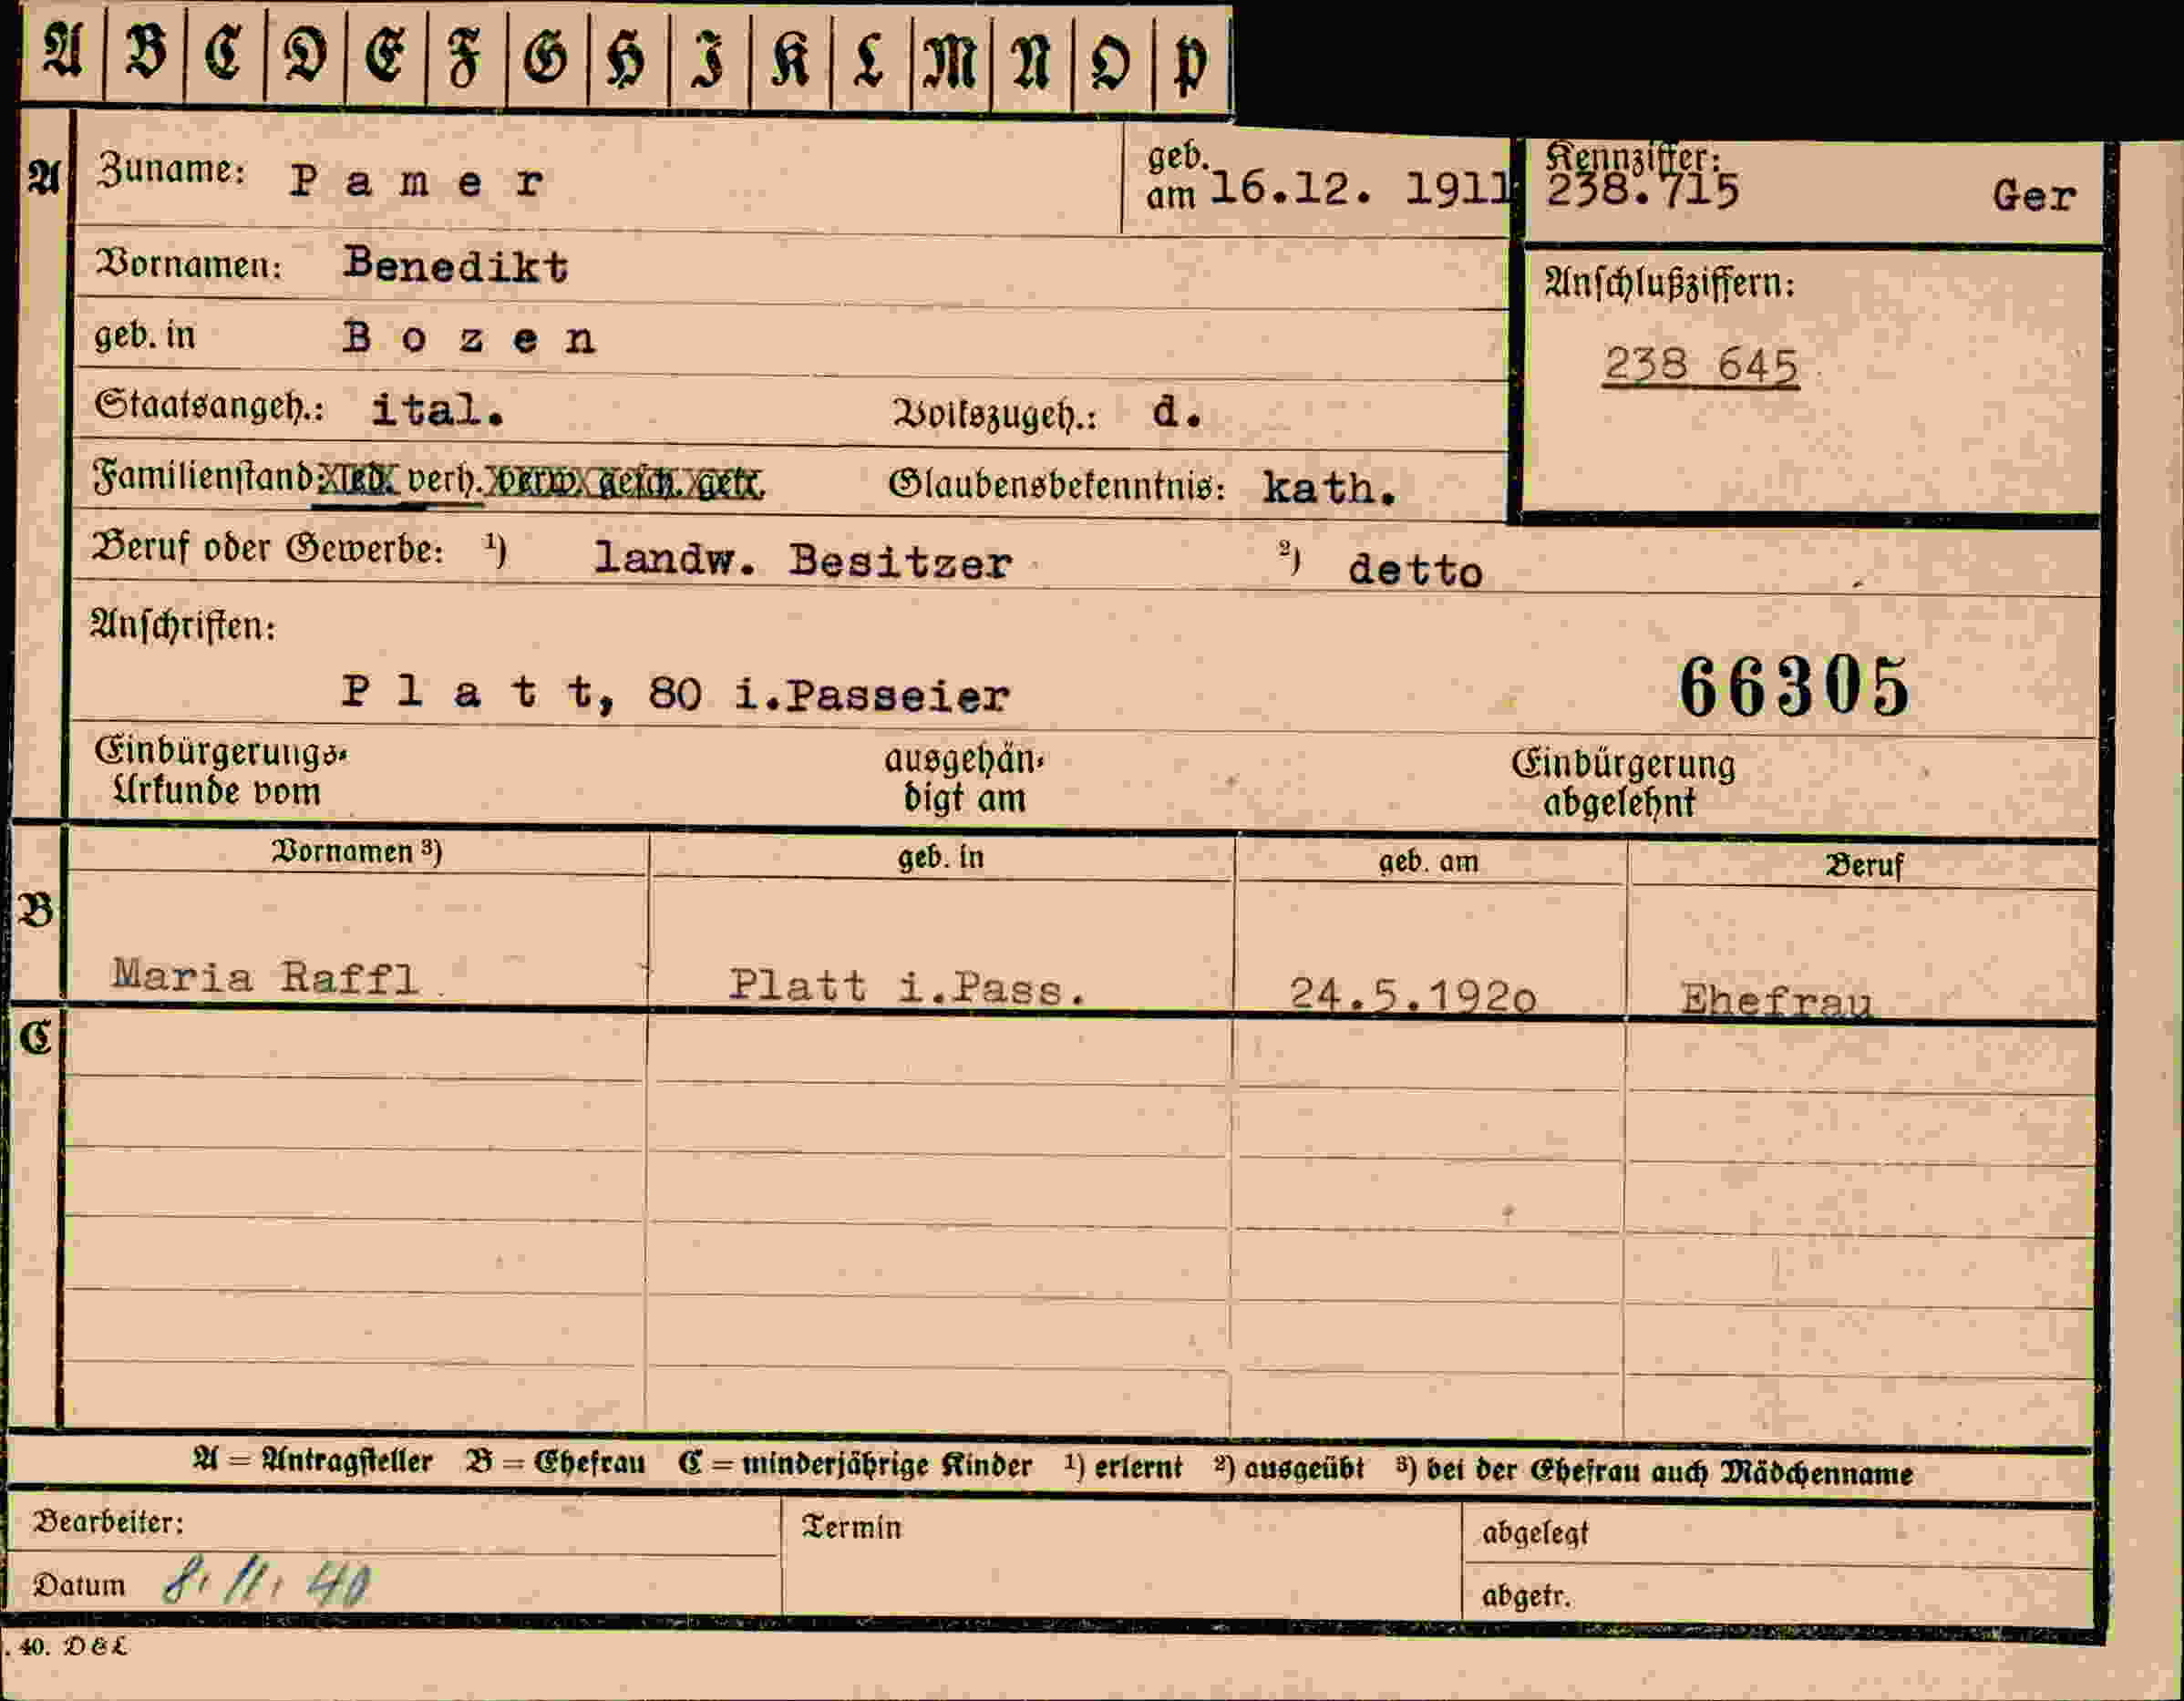 A B C D E F G H I K L M N O P
A Zuname: Pamer geb. am 16.12. 1911 Kennziffer: 238.715 Ger
Vornamen: Benedikt
geb. in Bozen
Anschlußziffern:
238 645
Staatsangeh.: ital. Volkszugeh.: d.
Familienstand: led. verh. verw. gesch. getr. Glaubensbekenntnis: kath.
Beruf oder Gewerbe: ¹) landw. Besitzer ²) detto
Anschriften:
Platt, 80 i.Passeier 66305
Einbürgerungs- ausgehän- Einbürgerung
Urkunde vom digt am abgelehnt
Vornamen ³) geb. in geb. am Beruf
B
Maria Raffl Platt i.Pass. 24.5.192o Ehefrau
C
A = Antragsteller B = Ehefrau C = minderjährige Kinder ¹) erlernt ²) ausgeübt ³) bei der Ehefrau auch Mädchenname
Bearbeiter: Termin abgelegt
Datum 8. 11. 40 abgetr.
. 40. D & L